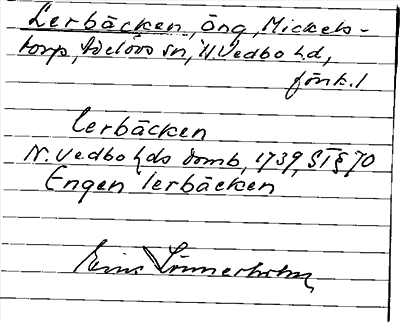 Lerbäcken, äng, Mickels-
torp, Adelövs sn, N. Vedbo hd,
Jönk. l
lerbäcken
N. Vedbo hds domb, 1739, S I § 70
Engen lerbäcken